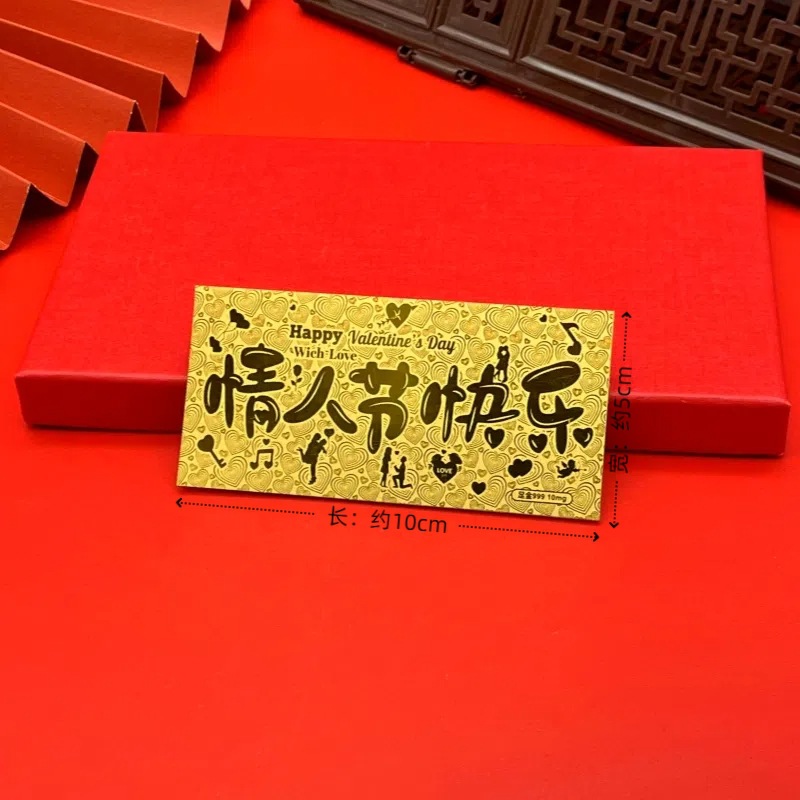 Happy Valentine's Day
Wich Love
情人节快乐
LOVE
足金999 10mg
长：约10cm
宽：约5cm